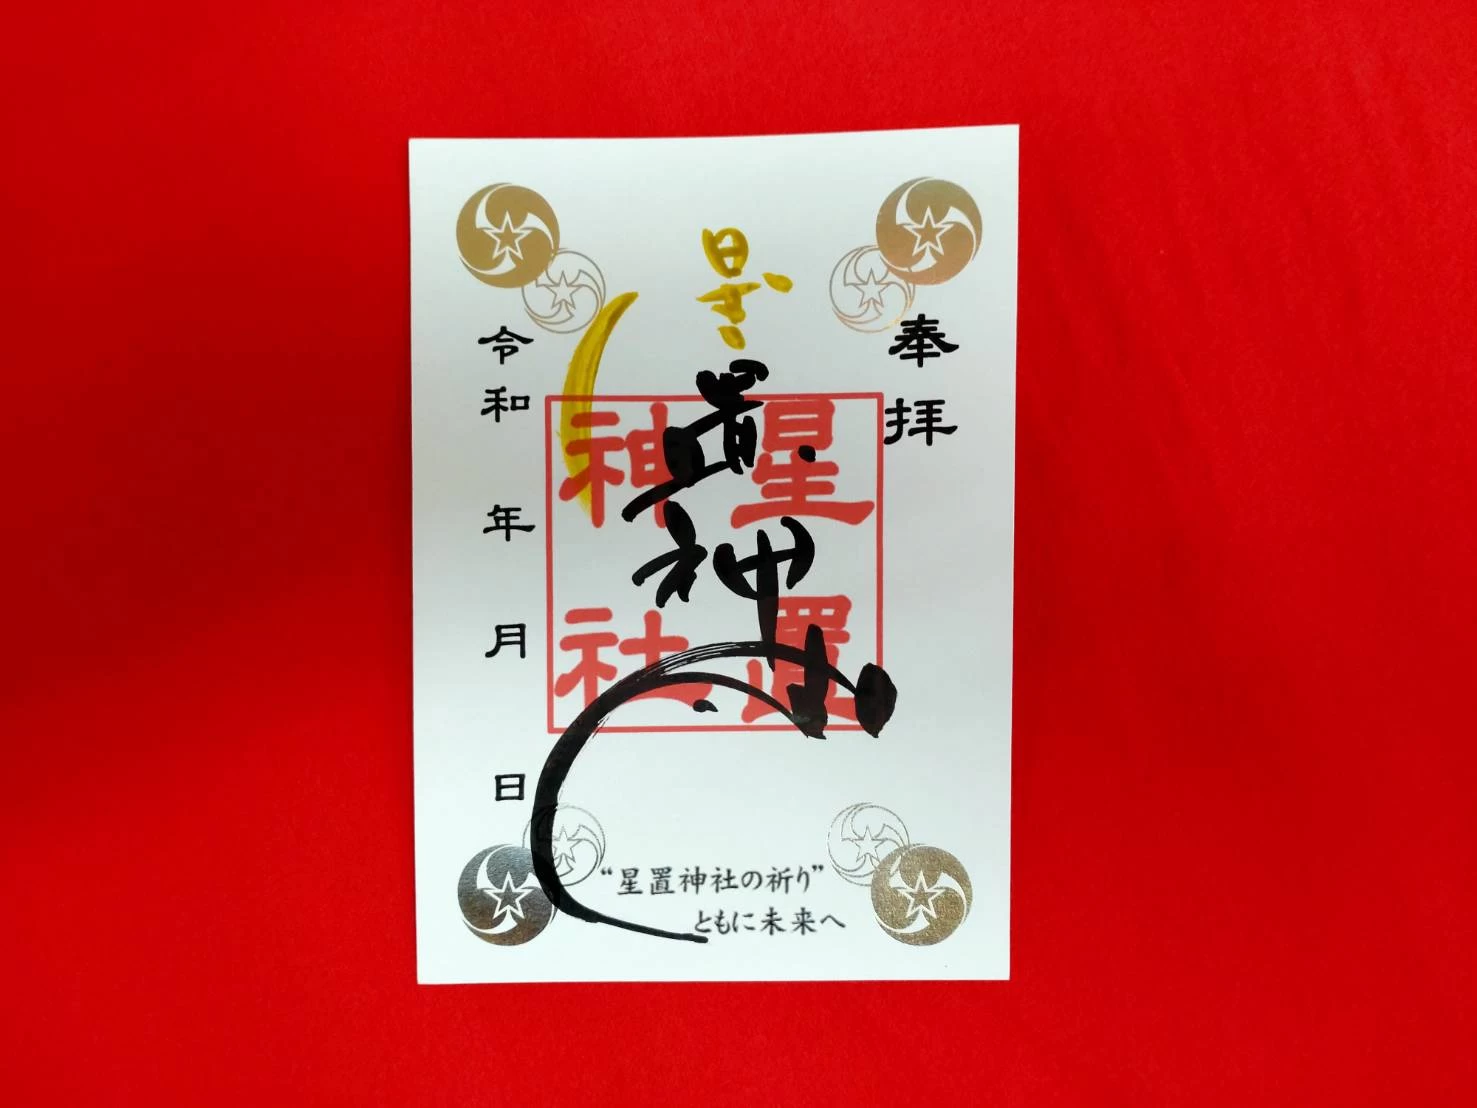 奉拝
星置神社
星置神社
令和 年 月 日
“星置神社の祈り”
ともに未来へ